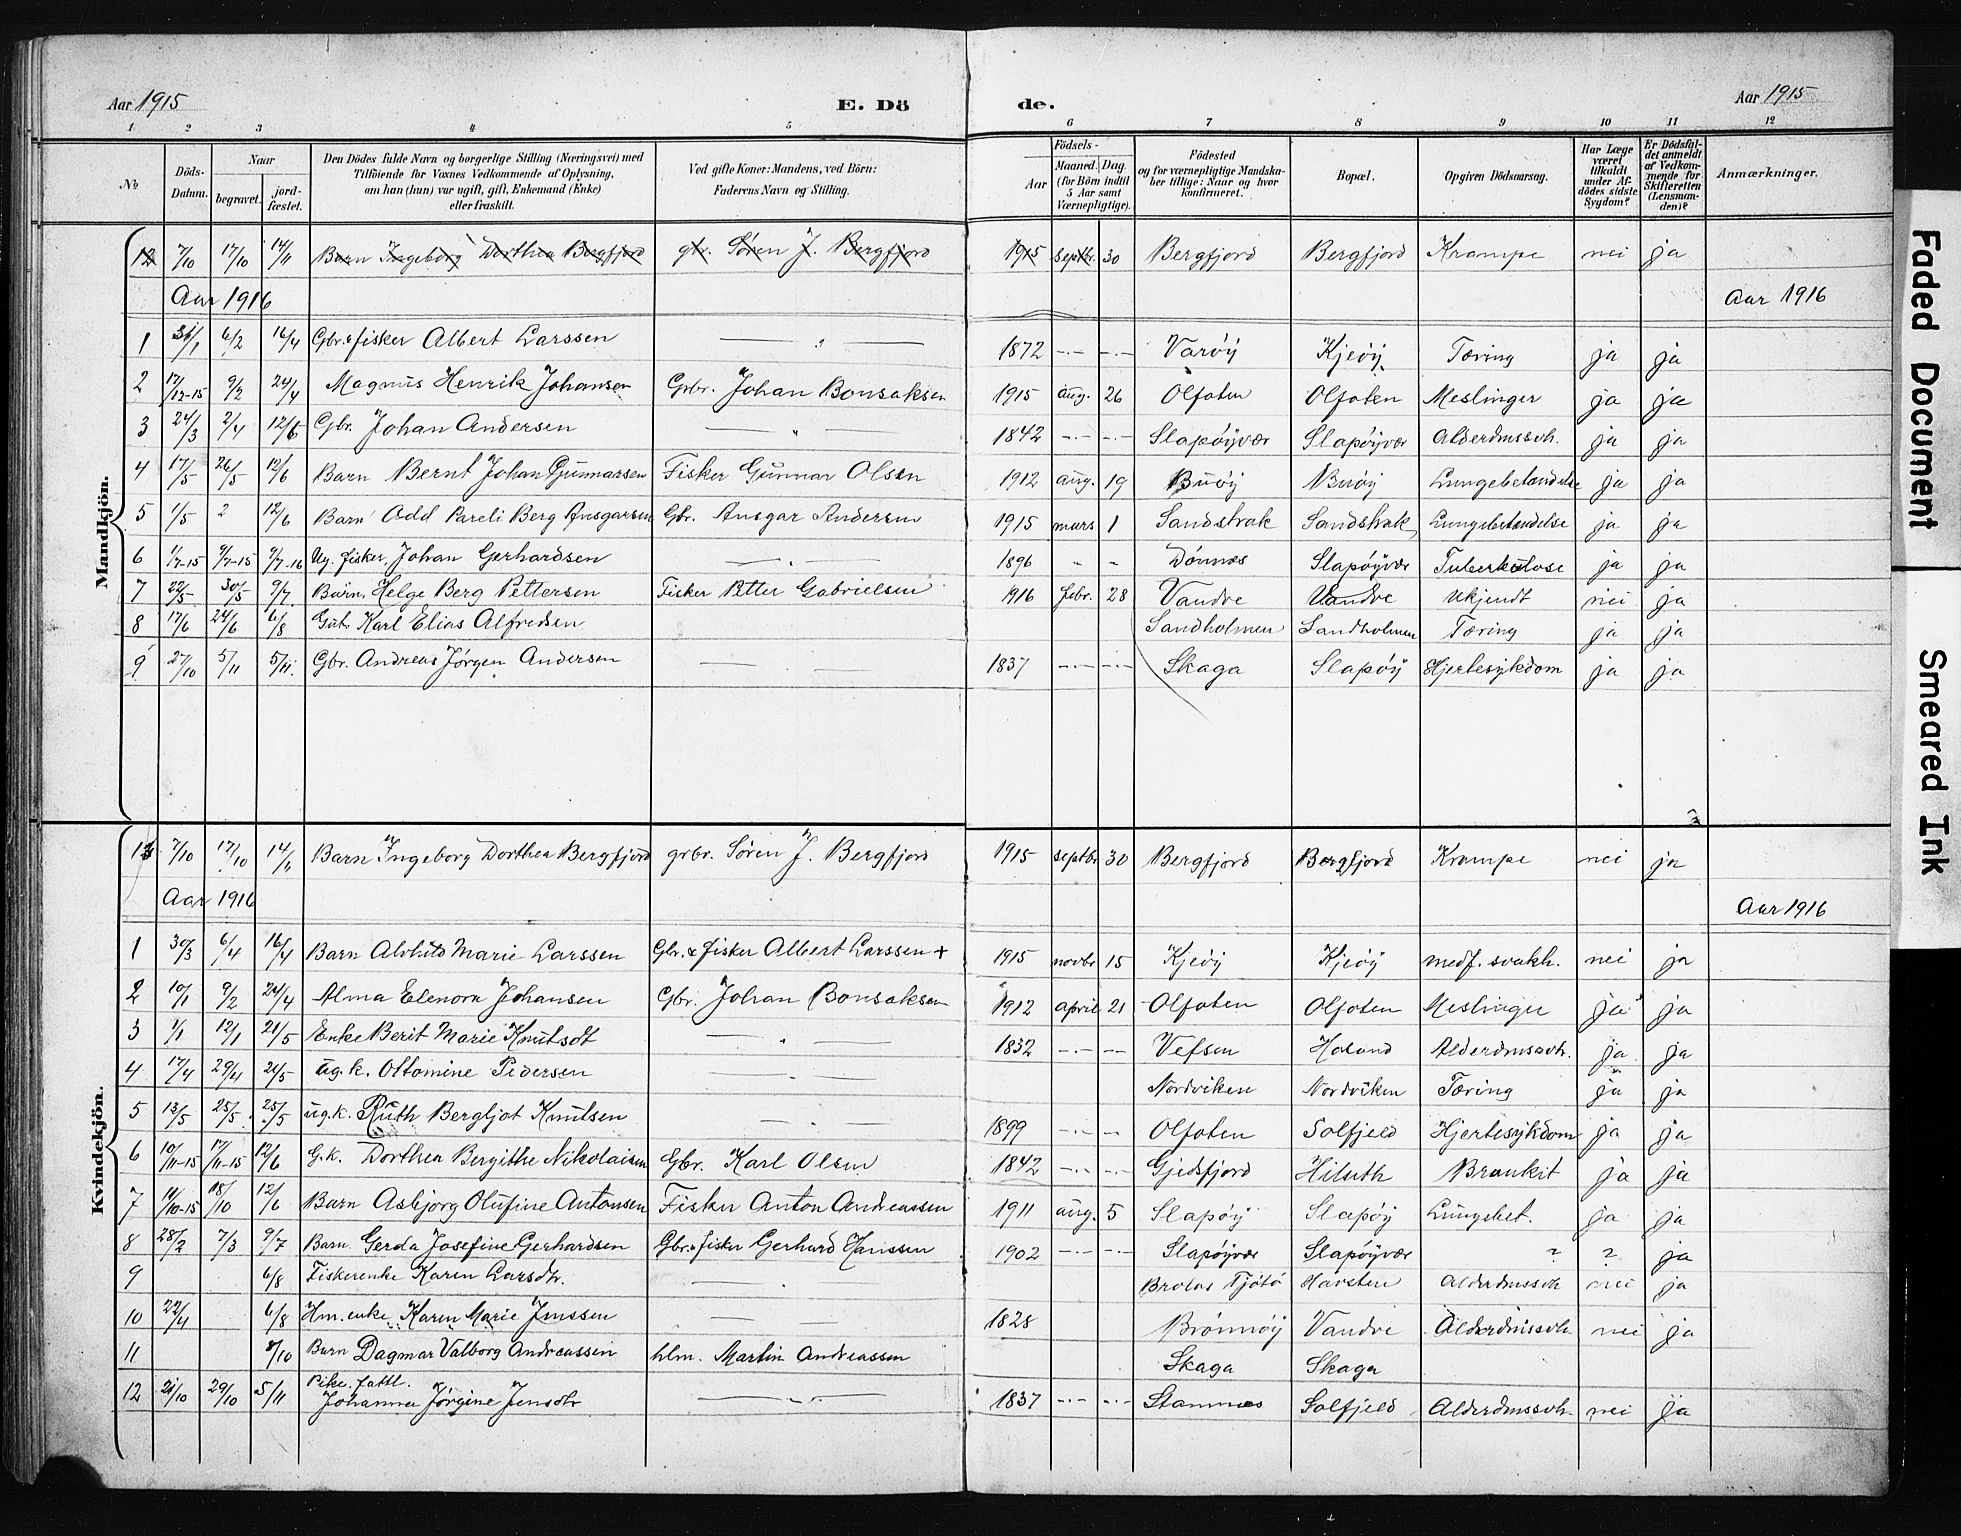 Aar 1915 E. Dö de. Aar 1915
1 2 3 4 5 6 7 8 9 10 11 12
№ Döds-Datum. Naar begravet. jord-fæstet. Den Dödes fulde Navn og borgerlige Stilling (Næringsvei) med Tilföiende for Voxnes Vedkommende af Oplysning, om han (hun) var ugift, gift, Enkemand (Enke) eller fraskilt. Ved gifte Koner: Mandens, ved Börn: Faderens Navn og Stilling. Födsels- Aar Maaned. Dag. (for Börn indtil 5 Aar samt Værnepligtige). Födested og for værnepligtige Mandskaber tillige: Naar og hvor konfirmeret. Bopæl. Opgiven Dödsaarsag. Har Læge været tilkaldt under Afdödes sidste Sygdom? Er Dödsfaldet anmeldt af Vedkommende for Skifteretten (Lensmanden)? Anmærkninger.
Mandkjön.
12 7/10 17/10 14/11 Barn Ingeborg Dorthea Bergfjord gbr. Søren J. Bergfjord 1915 septbr. 30 Bergfjord Bergfjord Krampe nei ja
Aar 1916 Aar 1916
1 31/1 6/2 16/4 Gbr. & fisker Albert Larssen 1872 Varøy Kjeøy Tæring ja ja
2 17/12-15 9/2 24/4 Magnus Henrik Johansen Grbr. Johan Bonsaksen 1915 aug. 26 Olfoten Olfoten Meslinger ja ja
3 24/3 2/4 12/6 Gbr. Johan Andersen 1842 Slapøyvær Slapøyvær Alderdmssvh. ja ja
4 17/5 26/5 12/6 Barn Bernt Johan Gunnarsen Fisker Gunnar Olsen 1912 aug. 19 Buøy Buøy Lungebetændelse ja ja
5 1/5 2 12/6 Barn Odd Pareli Berg Ansgarsen Gbr. Ansgar Andersen 1915 mars 1 Sandstrak Sandstrak Lungebetændelse ja ja
6 1/7-15 9/7-15 9/7-16 Ug. fisker, Johan Gerhardsen 1896 " " Dønnes Slapøyvær Tuberkulose ja ja
7 22/5 30/5 9/7 Barn, Helge Berg Pettersen Fisker Petter Gabrielsen 1916 febr. 28 Vandve Vandve Ukjendt nei ja
8 17/6 24/6 6/8 Gut. Karl Elias Alfredsen Sandholmen Sandholmen Tæring ja ja
9 27/10 5/11 5/11. Gbr. Andreas Jørgen Andersen 1837 Skaga Slapøy Hjertesykdom ja ja
Kvindekjön.
13 7/10 17/10 14/11 Barn Ingeborg Dorthea Bergfjord grbr. Søren J. Bergfjord 1915 septbr 30 Bergfjord Bergfjord Krampe nei ja
Aar 1916 Aar 1916
1 30/3 6/4 16/4 Barn Marie Larssen Gbr. & fisker Albert Larssen + 1915 novbr 15 Kjeøy Kjeøy medf. svakh. nei ja
2 10/1 9/2 24/4 Alma Elenora Johansen Gbr. Johan Bonsaksen 1912 april 21 Olfoten Olfoten Meslinger ja ja
3 1/1 12/1 21/5 Enke Berit Marie Knutsdt 1832 Vefsen Alderdmssvh. ja ja
4 17/4 29/4 21/5 ug. k. Ottomine Pedersen Nordviken Nordviken Tæring ja ja
5 13/5 25/5 25/5 ug. k. Ruth Bergljot Knutsen 1899 Olfoten Solfjeld Hjertesykdom ja ja
6 10/11-15 17/11-15 12/6 G. k. Dorthea Bergithe Nikolaisen Gbr. Karl Olsen 1842 Gjedsfjord Bronkit ja ja
7 11/10-15 18/10 12/6 Barn Asbjørg Olufine Antonsen Fisker Anton Andreassen 1911 aug. 5 Slapøy Slapøy Lungebet. ja ja
8 28/2 7/3 9/7 Barn. Gerda Josefine Gerhardsen Gbr. & fisker Gerhard Hanssen 1902 Slapøyvær Slapøyvær ? ? ja
9 6/8 Fiskerenke Karen Larsdtr. Tjøtø Alderdmssvh nei ja
10 22/4 6/8 Hm. enke, Karen Marie Jenssen 1828 Brönnøy Vandve Alderdmssvh. nei ja
11 8/10 Barn Dagmar Valborg Andreassen hlm. Martin Andreassen Skaga Skaga
12 21/10 29/10 5/11 Pike. fattl. Johanna Jørgine Jensdtr 1837 Stamnes Solfjeld Alderdmssvh. nei ja
Faded Document
Smeared Ink